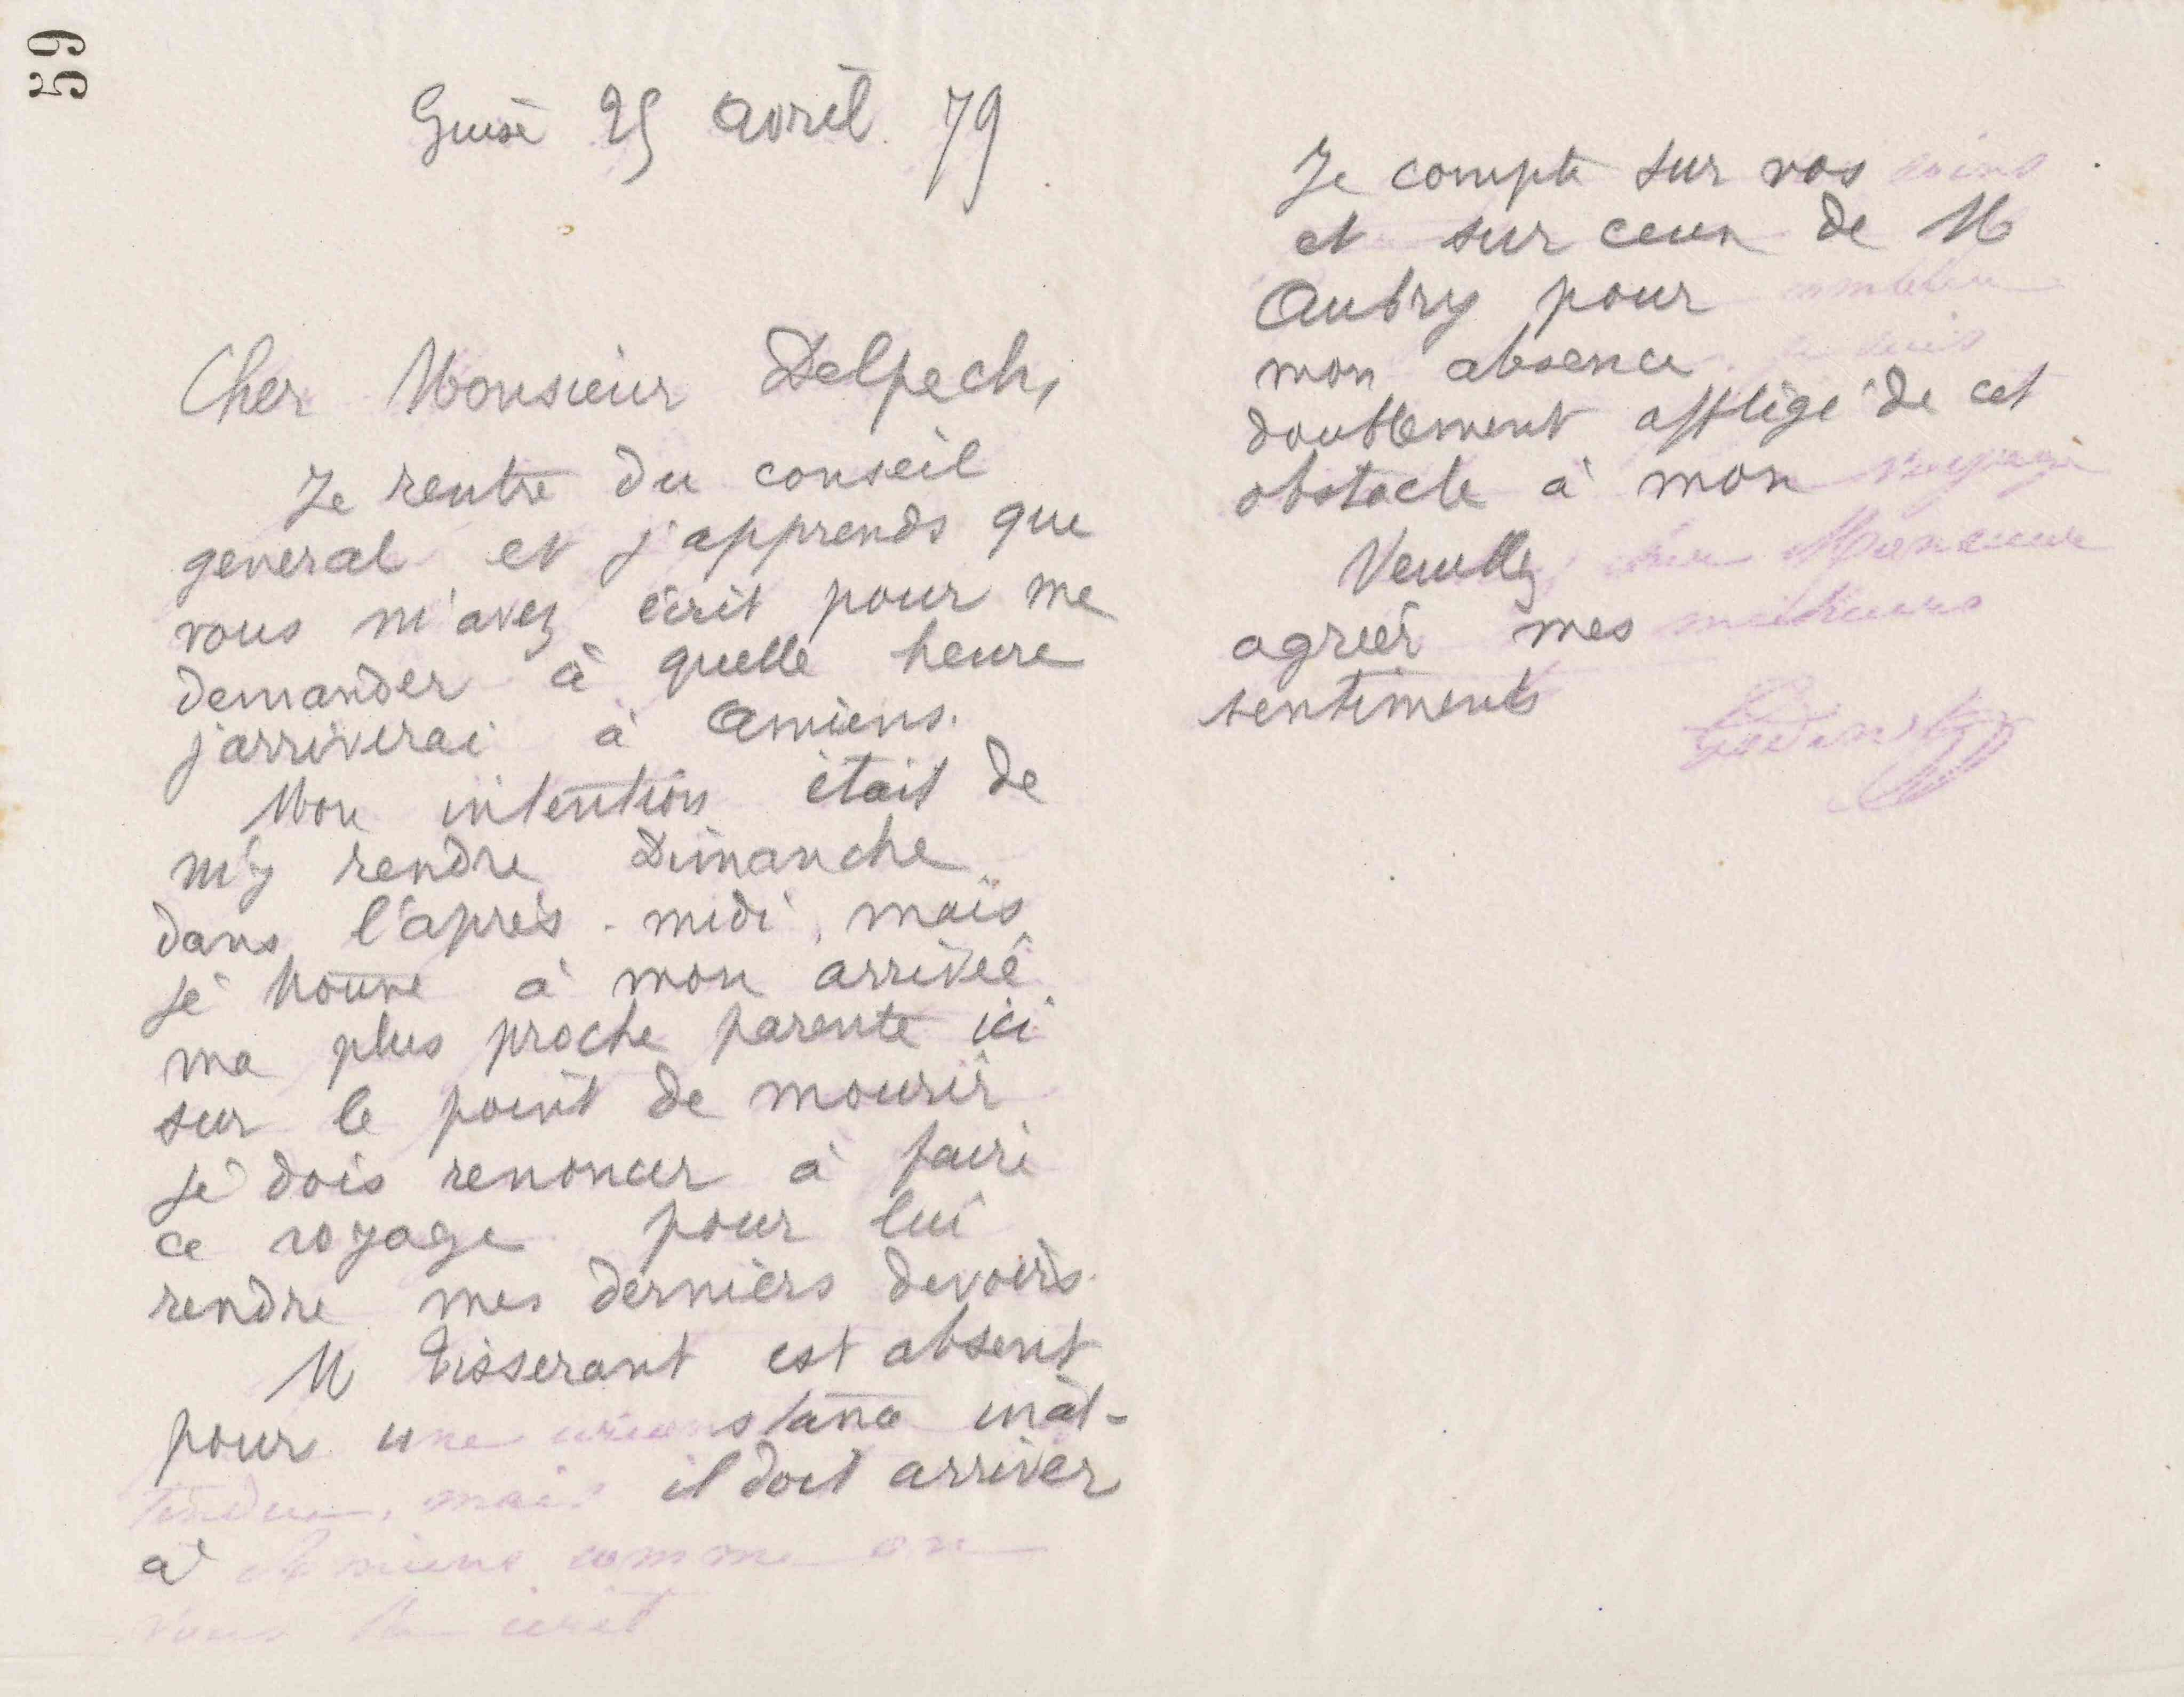 59
Guise 25 avril 79
Cher Monsieur Delpech,
Je rentre du conseil
general et j'apprends que
vous m'avez écrit pour me
demander à quelle heure
j'arriverai à Amiens.
Mon intention était de
m'y rendre Dimanche
dans l'après-midi, mais
je trouve à mon arrivée
ma plus proche parente ici
sur le point de mourir
je dois renoncer à faire
ce voyage pour lui
rendre mes derniers devoirs.
M Tisserant est absent
pour une circonstance inat-
tendue, mais il doit arriver
à Amiens comme on
vous l'a écrit
Je compte sur vos soins
et sur ceux de M
Aubry pour
mon absence je suis
doublement affligé de cet
obstacle à mon voyage
Veuillez, cher Monsieur
agréer mes meilleurs
sentiments
Godin